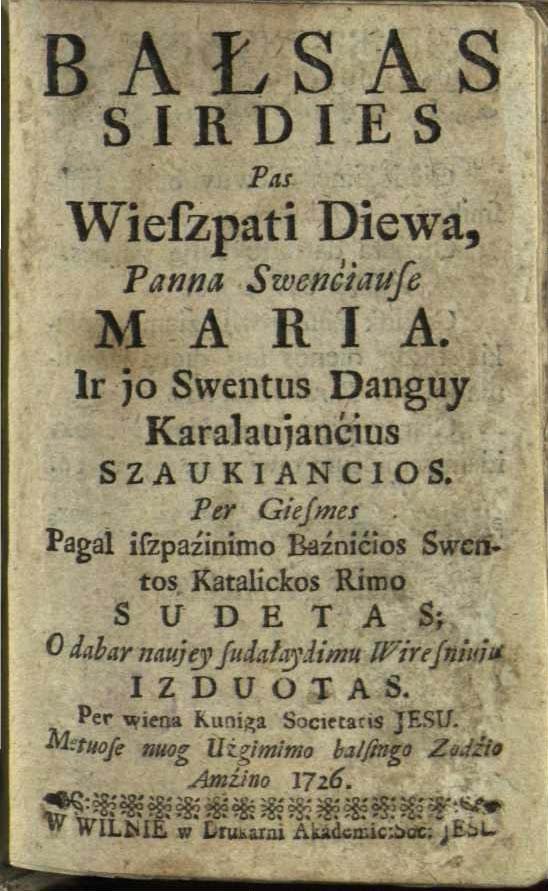 BAŁSAS
SIRDIES
Pas
Wieſzpati Diewa,
Panna Swenćiauſe
MARIA.
Ir jo Swentus Danguy
Karalaujanćius
SZAUKIANCIOS.
Per Gieſmes
Pagal iſzpaźinimo Baźnićios Swen-
tos Katalickos Rimo
SUDETAS;
O dabar naujey ſudałaydimu Wireſniuju
IZDUOTAS.
Per wiena Kuniga Societatis JESU.
Metuoſe nuog Użgimimo balſingo Zodźio
Amźino 1726.
W WILNIE w Drukarni Akademic: Soc: JESU